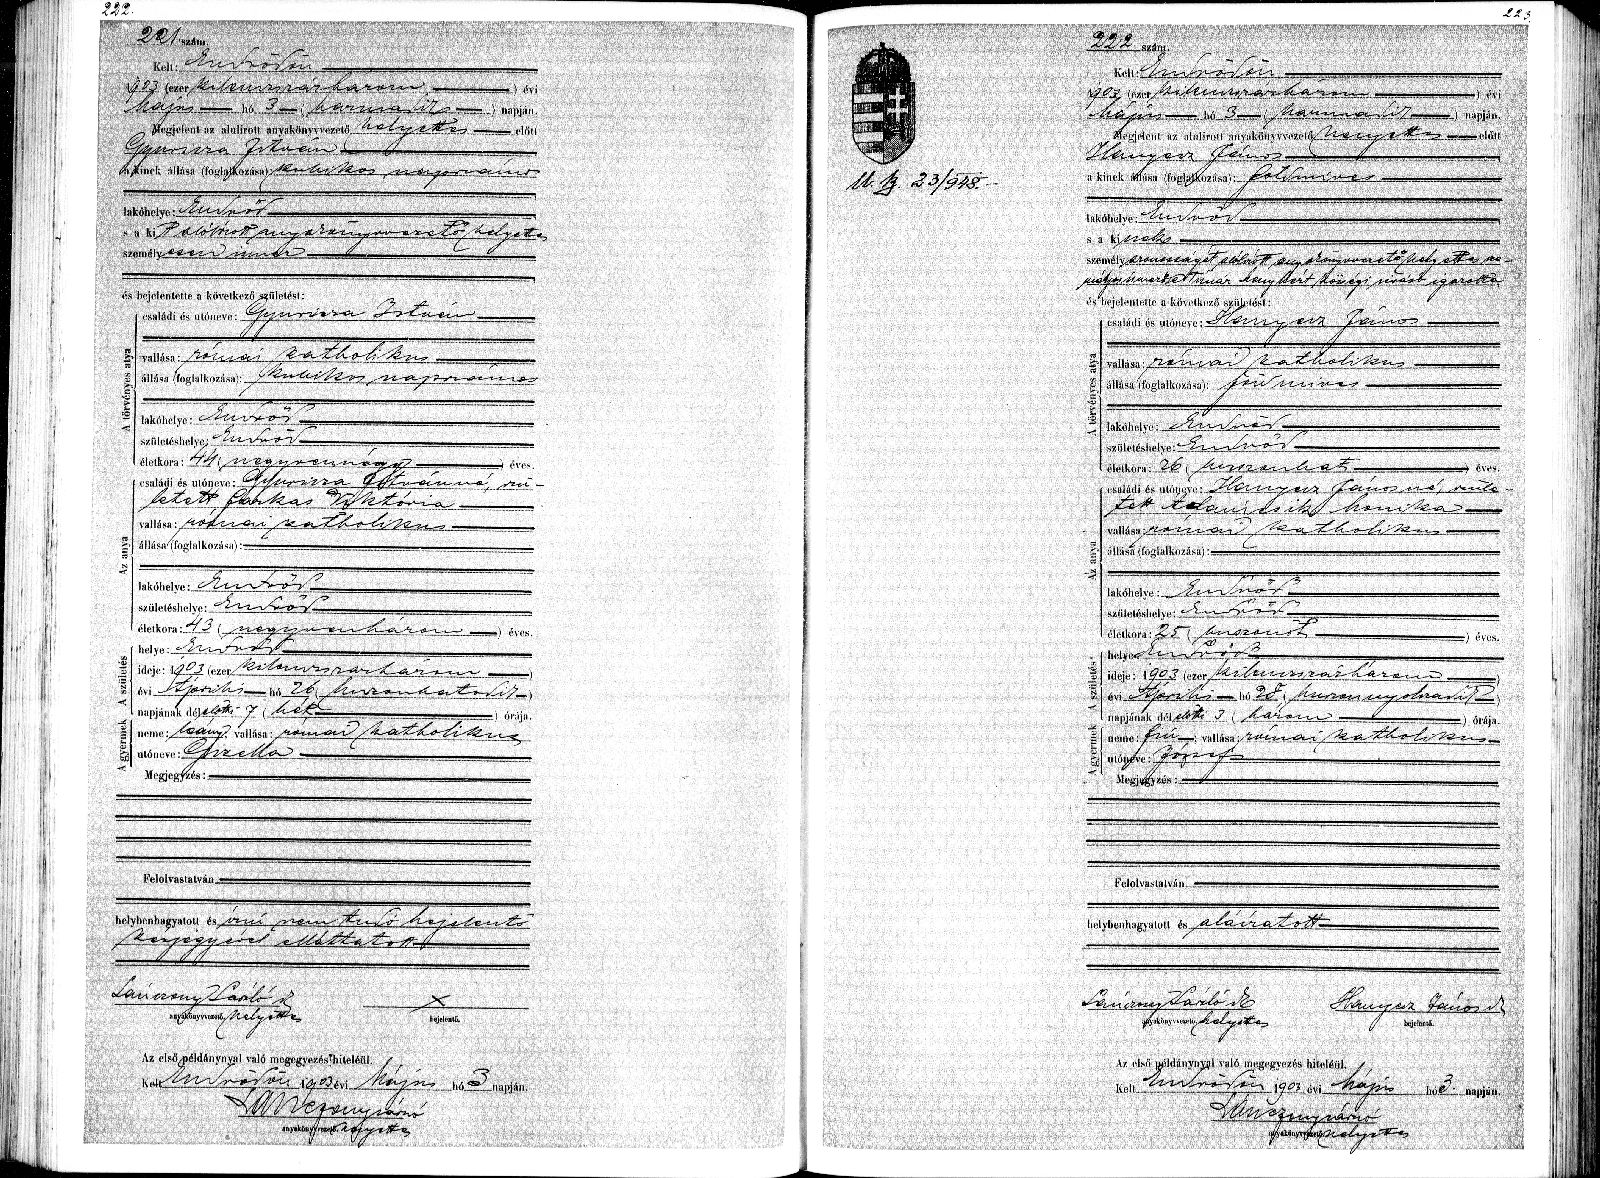 222.
221 szám
Kelt: Endrődön
1903 (ezer kilenczszázhárom) évi
Május hó 3 (harmadik) napján.
Megjelent az alulirott anyakönyvvezető helyettes előtt
Gyuricza István
a kinek állása (foglalkozása): kubikos napszámos
lakóhelye: Endrőd
s a ki t alólirott anyakönyvvezető helyettes
személyesen ismer
és bejelentette a következő születést:
A törvényes atya
családi és utóneve: Gyuricza István
vallása: római katholikus
állása (foglalkozása): kubikos napszámos
lakóhelye: Endrőd
születéshelye: Endrőd
életkora: 44 (negyvennégy) éves.
Az anya
családi és utóneve: Gyuricza Istvánné, szü-
letett Farkas Viktória
vallása: római katholikus
állása (foglalkozása):
lakóhelye: Endrőd
születéshelye: Endrőd
életkora: 43 (negyvenhárom) éves.
A születés
helye: Endrőd
ideje: 1903 (ezer kilenczszázhárom)
évi Április hó 26 (huszonhatodik)
napjának délelőtti 7 (hét) órája.
A gyermek
neme: leány; vallása: római katholikus
utóneve: Gizella
Megjegyzés:
Felolvastatván,
helybenhagyatott és írni nem tudó bejelentő
kézjegyével elláttatott
Lánczony László h.
anyakönyvvezető helyettes
x
bejelentő.
Az első példánynyal való megegyezés hiteléül.
Kelt Endrődön 1903 évi Május hó 3 napján.
anyakönyvvezető helyettes
223.
U. sz. 23/948.
222 szám.
Kelt: Endrődön
1903 (ezer kilenczszázhárom) évi
Május hó 3 (harmadik) napján.
Megjelent az alulirott anyakönyvvezető helyettes előtt
Hanyecz János
a kinek állása (foglalkozása): földmives
lakóhelye: Endrőd
s a ki nek
személyazonosságát alólirott anyakönyvvezető helyettes
községi irnok igazolta
és bejelentette a következő születést:
A törvényes atya
családi és utóneve: Hanyecz János
vallása: római katholikus
állása (foglalkozása): földmives
lakóhelye: Endrőd
születéshelye: Endrőd
életkora: 26 (huszonhat) éves.
Az anya
családi és utóneve: Hanyecz Jánosné, szüle-
tett Adamcsik Monika
vallása: római katholikus
állása (foglalkozása):
lakóhelye: Endrőd
születéshelye: Endrőd
életkora: 25 (huszonöt) éves.
A születés
helye: Endrőd
ideje: 1903 (ezer kilenczszázhárom)
évi Április hó 28 (huszonnyolczadik)
napjának délelőtti 3 (három) órája.
A gyermek
neme: fiu; vallása: római katholikus
utóneve: József
Megjegyzés:
Felolvastatván,
helybenhagyatott és aláiratott
Lánczony László h.
anyakönyvvezető helyettes
Hanyecz János
bejelentő.
Az első példánynyal való megegyezés hiteléül.
Kelt Endrődön 1903 évi Május hó 3 napján.
anyakönyvvezető helyettes